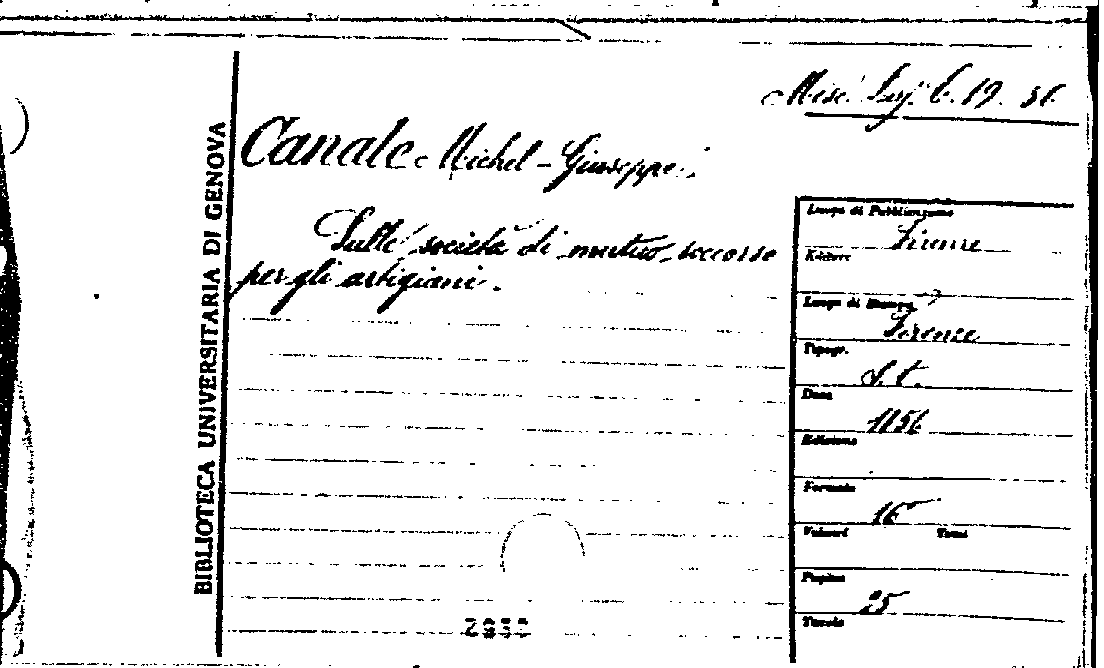 BIBLIOTECA UNIVERSITARIA DI GENOVA
Misc. Lig. C. 19. 31
Canale Michel-Giuseppe.
Sulle società di mutuo soccorso
per gli artigiani.
Luogo di Pubblicazione
Firenze
Editore
Luogo di Stampa
Firenze
Tipogr.
S. t.
Data
1856
Edizione
Formato
16
Volumi Tomi
Pagine
25
Tavole